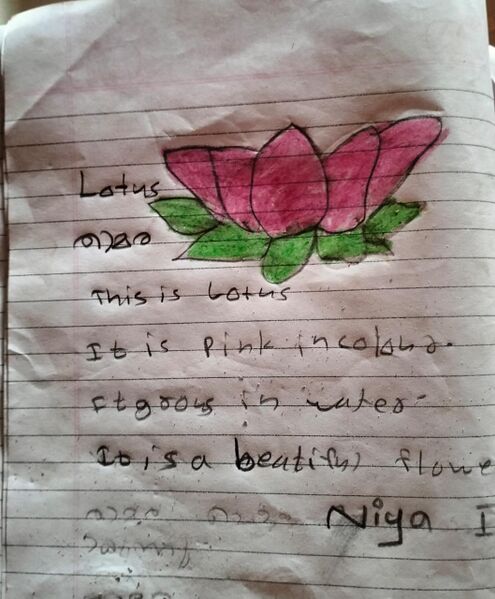 Lotus
താമര
This is Lotus
It is pink in colour.
It grows in water.
It is a beatiful flowe
Niya I